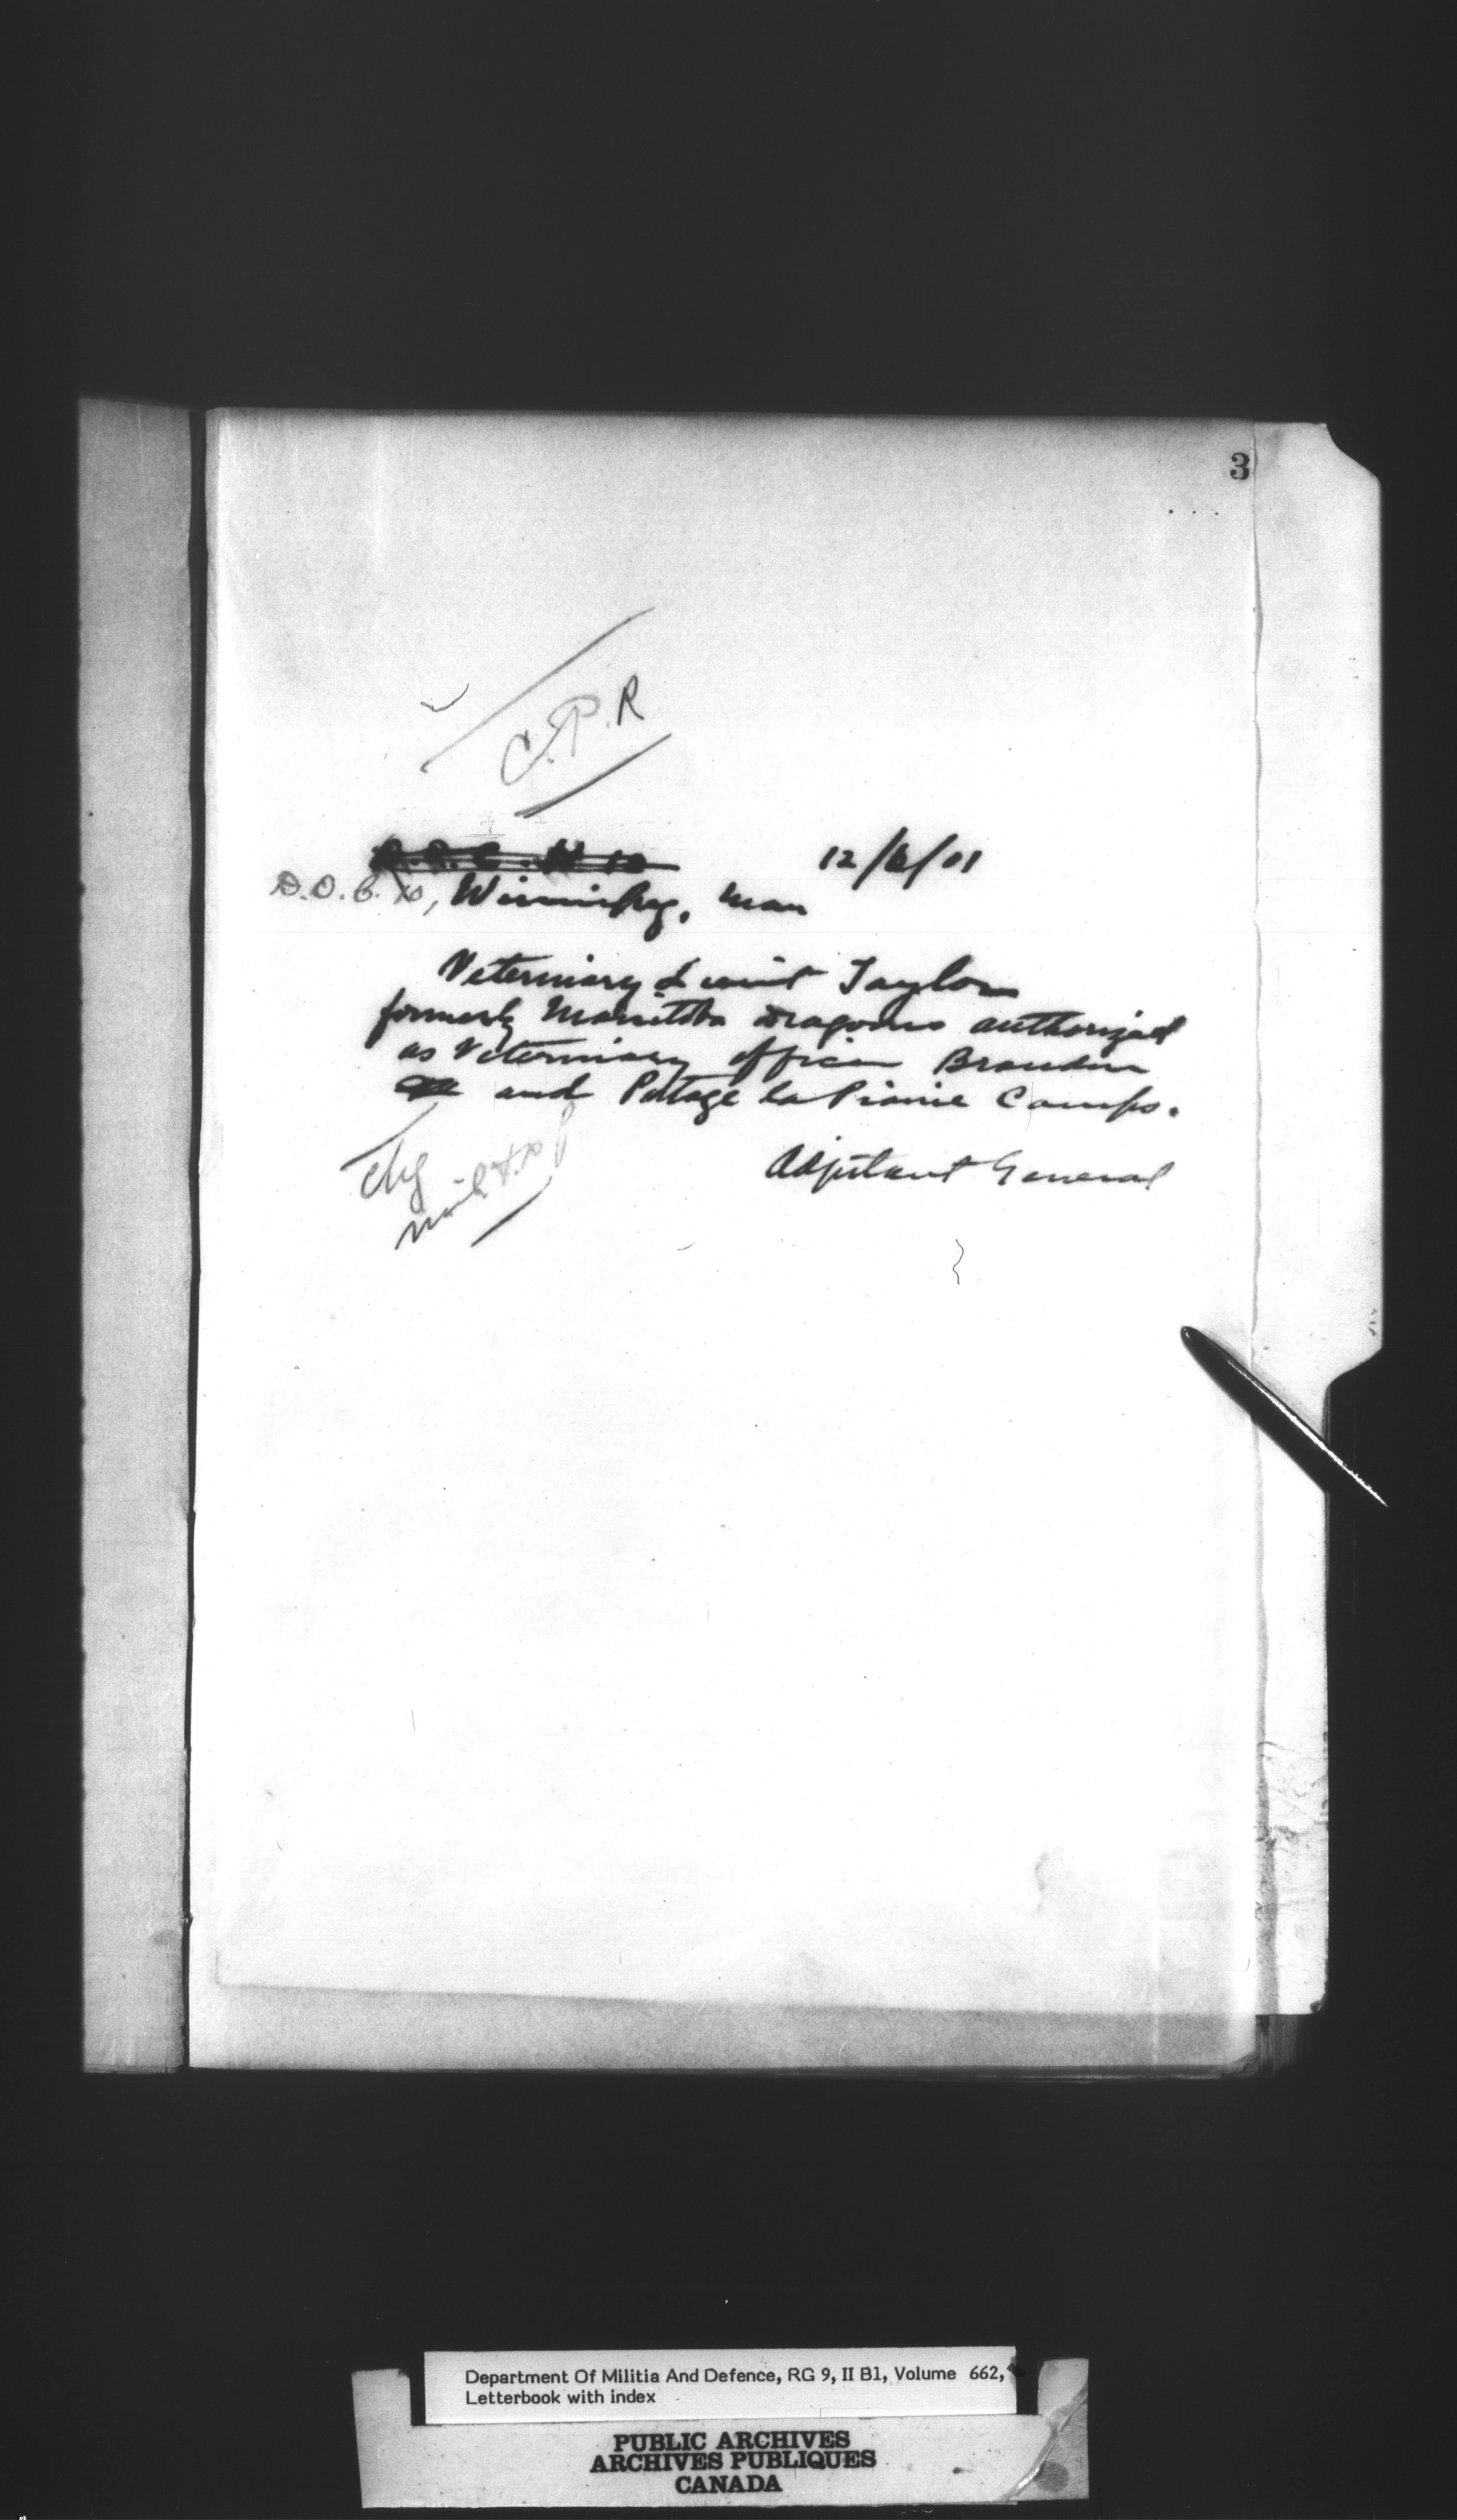 3
C.P.R
D.O.C. 10
12/6/01
D.O.C. 10, Winnipeg, Man
Veterinary Lieut Taylor
formerly Manitoba Dragoons authorized
as Veterinary officer Brandon
and Portage la Prairie Camps.
Adjutant General
Chg
Militia
Department Of Militia And Defence, RG 9, II B1, Volume 662,
Letterbook with index
PUBLIC ARCHIVES
ARCHIVES PUBLIQUES
CANADA